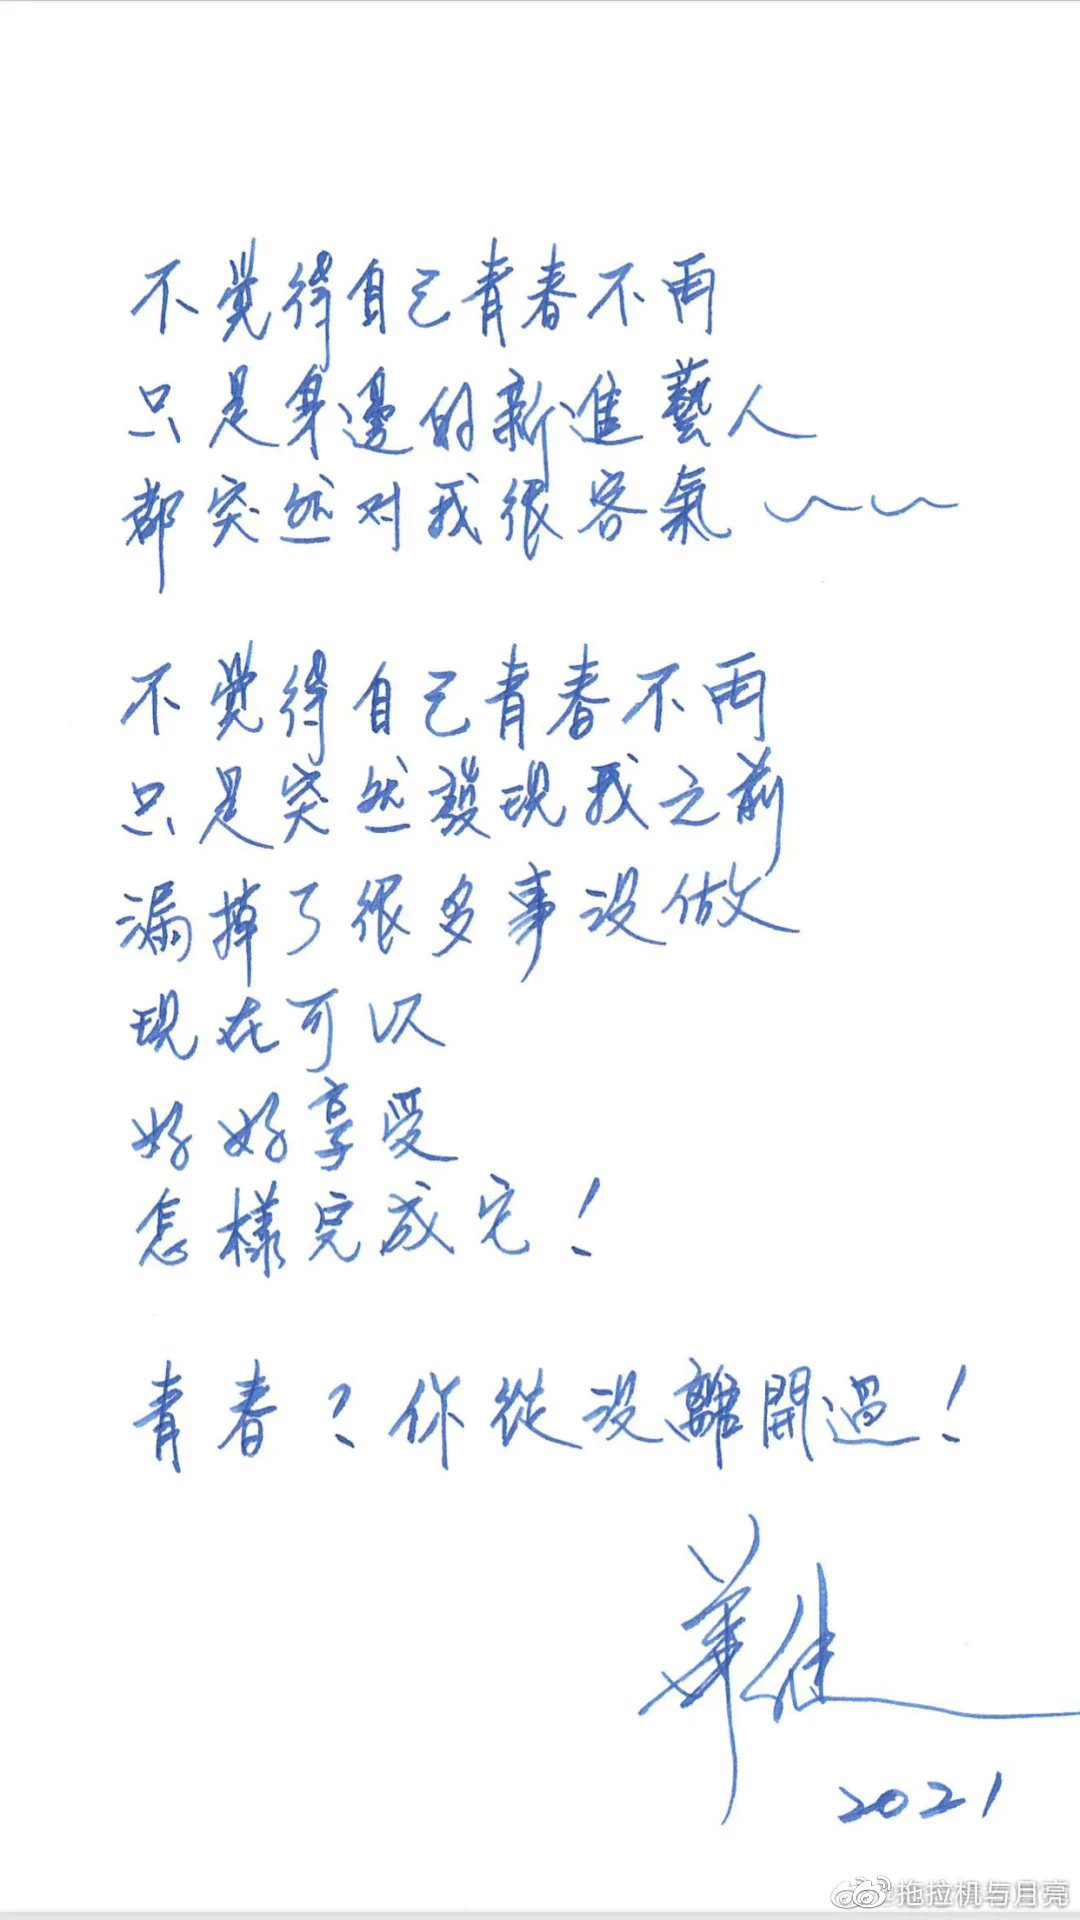 不覺得自己青春不再
只是身邊的新進藝人
都突然对我很客氣~~
不覺得自己青春不再
只是突然發現我之前
漏掉了很多事沒做
現在可以
好好享受
怎樣完成它!
青春?你從沒離開過!
華健
2021
拖拉机与月亮